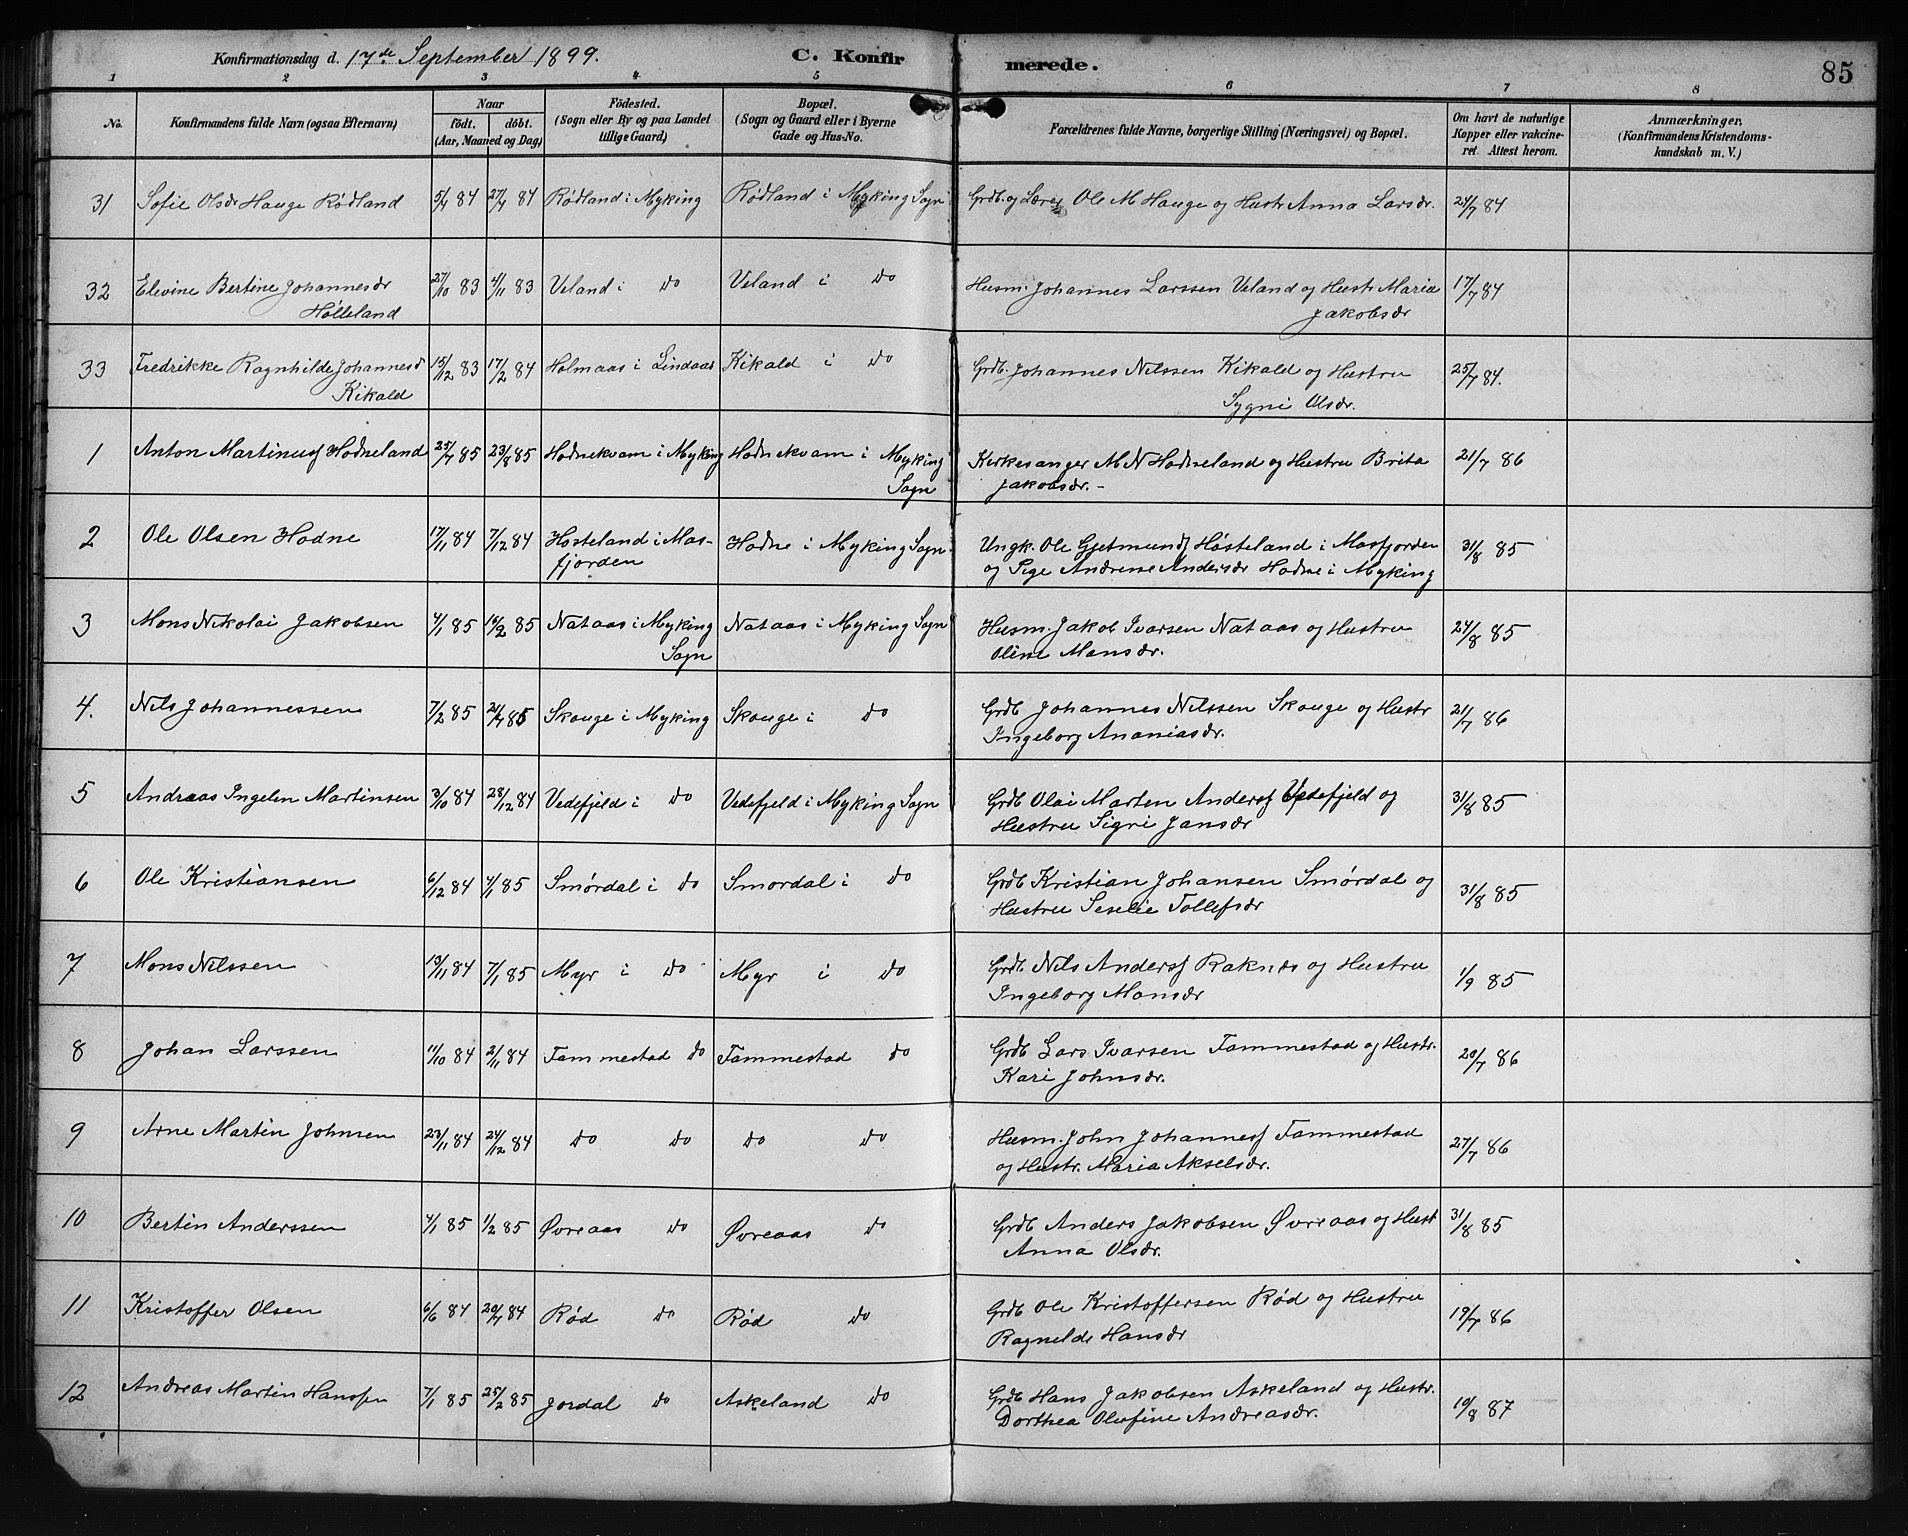 Konfirmationsdag d. 17de September 1899. C. Konfirmerede. 85
1 2 3 4 5 6 7 8
No.
Konfirmandens fulde Navn (ogsaa Efternavn)
Naar
födt. döbt.
(Aar, Maaned og Dag)
Födested.
(Sogn eller By og paa Landet
tillige Gaard.)
Bopæl.
(Sogn og Gaard eller i Byerne
Gade og Hus-No.
Forældrenes fulde Navne, borgerlige Stilling (Næringsvei) og Bopæl.
Om havt de naturlige
Kopper eller vakcine-
ret. Attest herom.
Anmærkninger.
(Konfirmandens Kristendoms-
kundskab m. V.)
31 Sofie Olsdr Hauge Rødland 5/4 84 27/4 84 Rødland i Myking Rødland i Myking Sogn Grdb. og Lærer Ole M Hauge og Hustr Anna Larsdr. 24/7 84
32 Elevine Bertine Johannesdr 27/10 83 4/11 83 Veland i Do Veland i Do Husm. Johannes Larssen Veland og Hustr Maria 17/7 84
Hølleland Jakobsdr
33 Fredrikke Ragnhilde Johannesd 15/12 83 17/2 84 Holmaas i Lindaas Kikald i Do Grdb. Johannes Nilssen Kikald og Hustru 25/7 84.
Kikald Sygni Olsdr.
1 Anton Martinusf Hodneland 25/7 85 23/8 85 Hodnekvam i Myking Hodnekvam i Myking Kirkesanger M N Hodneland og Hustru Brita 21/7 86
Sogn Jakobsdr.-
2 Ole Olsen Hodne 17/11 84 7/12 84 Hosteland i Mas- Hodne i Myking Sogn Ungk. Ole Gjetmundf Høsteland i Masfjorden 31/8 85
fjorden og Pige Andrene Andersdr Hodne i Myking
3 Mons Nikolai Jakobsen 4/1 85 14/2 85 Nataas i Myking Nataas i Myking Sogn Husm. Jakob Ivarsen Nataas og Hustru 24/8 85
Sogn Oline Monsdr.
4. Nils Johannessen 7/2 85 21/4 85 Skouge i Myking Skouge i Do Grdb Johannes Nilssen Skouge og Hustr 21/7 86
Ingeborg Ananiasdr.
5 Andreas Ingelen Martinsen 3/10 84 28/12 84 Vedefjeld i Do Vedefjeld i Myking Sogn Grdb Olai Marten Andersf Vedefjeld og 31/8 85
Hustru Sigri Jansdr
6 Ole Kristiansen 6/12 84 4/1 85 Smørdal i Do Smordal i Do Grdb Kristian Johansen Smørdal og 31/8 85
Hustru Seselie Tollefsdr
7 Mons Nilssen 13/11 84 7/1 85 Myr i Do Myr i Do Grdb Nils Andersf Raknes og Hustru 1/9 85
Ingeborg Monsdr
8 Johan Larssen 11/10 84 2/11 84 Fammestad Do Fammestad Do Grdb Lars Ivarsen Fammestad og Hustr. 20/7 86
Kari Johnsdr.
9 Arne Martin Johnsen 23/11 84 24/12 84 Do Do Do Do Husm. John Johannesf Fammestad 27/7 86
og Hustr. Maria Akselsdr.
10 Bertin Anderssen 4/1 85 1/2 85 Øvreaas Do Øvreaas Do Grdb Anders Jakobsen Øvreaas og Hust 31/8 85
Anna Olsdr.
11 Kristoffer Olsen 6/6 84 20/7 84 Rød Do Rød Do Grdb Ole Kristoffersen Rød og Hustru 19/7 86
Ragnelde Hansdr
12 Andreas Martin Hanssen 7/1 85 25/2 85 Jordal Do Askeland Do Grdb Hans Jakobsen Askeland og Hustr. 19/8 87
Dorthea Olufine Andreasdr.